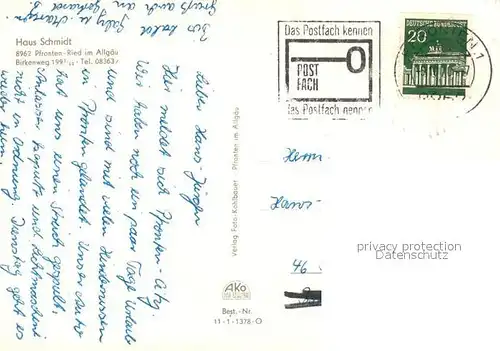 Haus Schmidt
8962 Pfronten-Ried im Allgäu
Birkenweg - Tel. 08363
Gruß auch an
Lieber Hans-Jürgen
Hier meldet sich Pfronten-City.
Wir haben noch ein paar Tage Urlaub
und sind mit vielen
in Pfronten gelandet. Unser Auto
hat uns einen Streich gespielt,
Anlasser kaputt und Lichtmaschine
nicht in Ordnung. Dienstag geht es
wieder heim.
Verlag Foto-Kohlbauer Pfronten im Allgäu
AKO
Best.-Nr.
11-1-1378-O
Das Postfach kennen
POST
FACH
das Postfach nennen
DEUTSCHE BUNDESPOST
20
Herrn
Hans-
46
privacy protection
Datenschutz